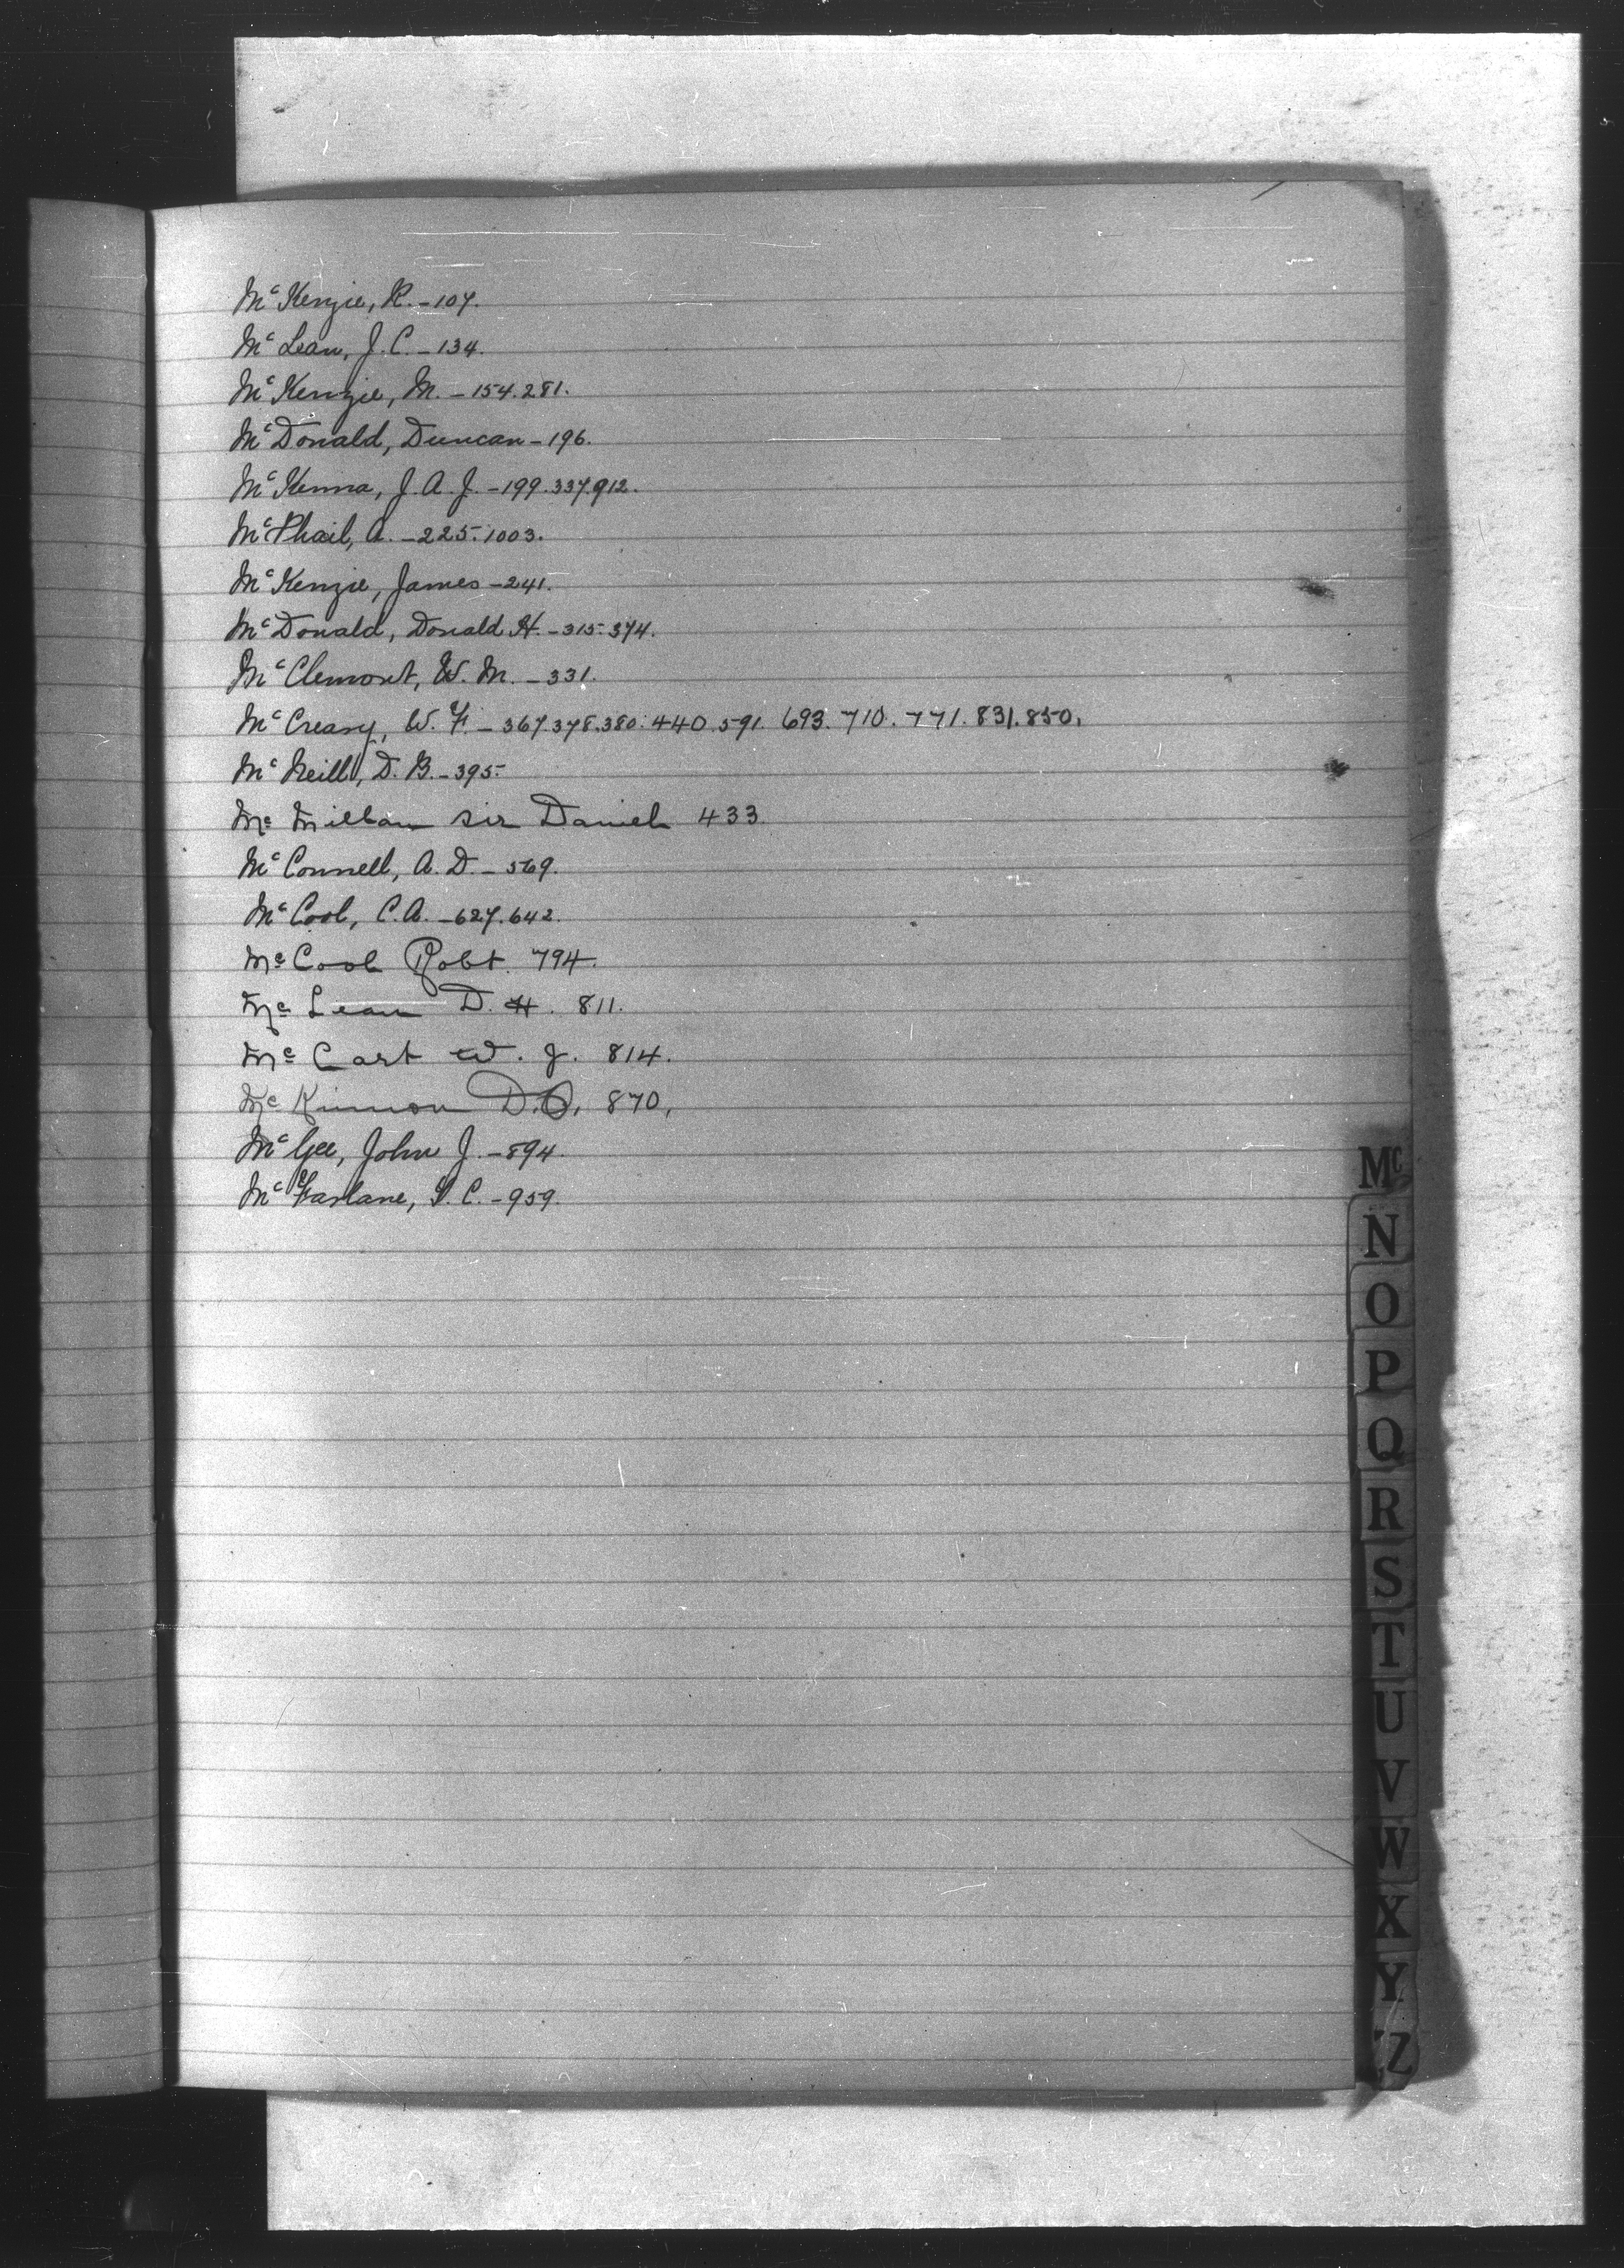 Mc Kenzie, R. - 107.
Mc Lean, J. C. - 134.
Mc Kenzie, M. - 154. 281.
Mc Donald, Duncan - 196.
Mc Kenna, J. A. J. - 199. 337. 912.
Mc Phail, A. - 225. 1003.
Mc Kenzie, James - 241.
Mc Donald, Donald H. - 315. 374.
Mc Clemont, W. M. - 331.
Mc Creary, W. F. - 367. 378. 380. 440. 591. 693. 710. 771. 831. 850.
Mc Neill, D. B. - 395.
Mc Millan sir Daniel 433
Mc Connell, A. D. - 569.
Mc Cool, C. A. - 627. 642.
Mc Cool Robt. 794.
Mc Lean D. H. 811.
Mc Cart W. J. 814.
Mc Kinnon D. 870,
Mc Gee, John J. - 894.
Mc Farlane, C. - 959.
Mc
N
O
P
Q
R
S
T
U
V
W
X
Y
Z